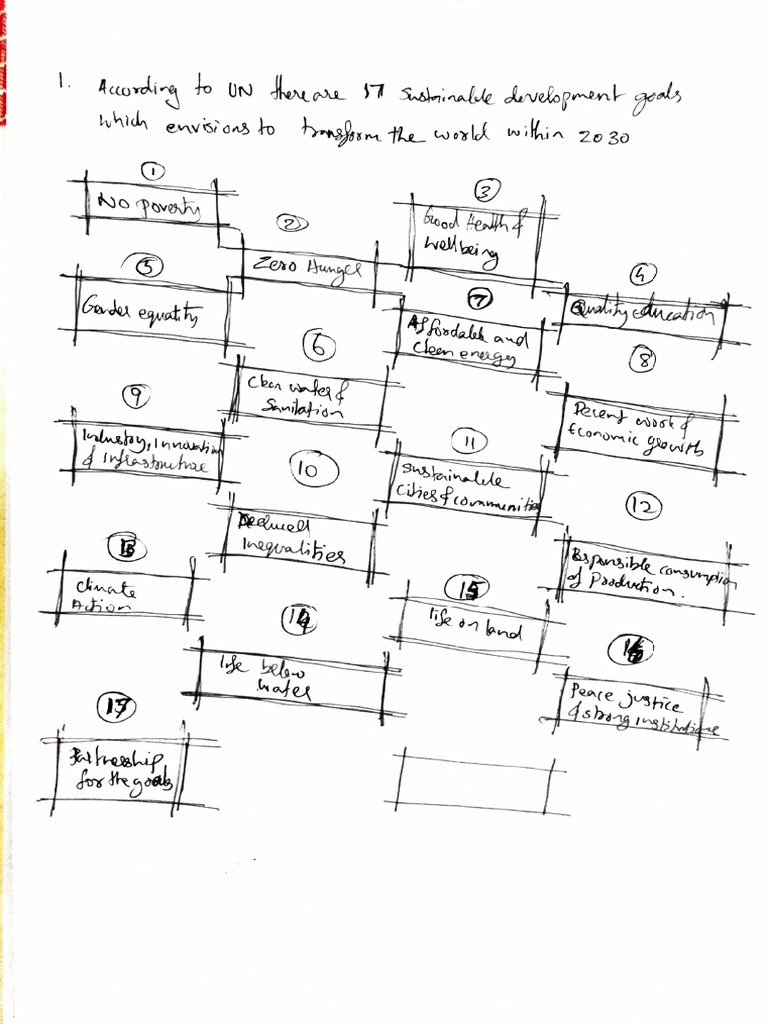 1. According to UN there are 17 sustainable development goals
which envisions to transform the world within 2030
1
No poverty
2
Zero Hunger
3
Good Health &
Wellbeing
4
Quality education
5
Gender equality
6
Clean water &
Sanitation
7
Affordable and
Clean energy
8
Decent work &
Economic growth
9
Industry, innovation
& infrastructure
10
Reduced
inequalities
11
Sustainable
Cities & communities
12
Responsible consumption
of Production.
13
Climate
Action
14
life below
water
15
life on land
16
Peace justice
& strong institutions
17
Partnership
for the goals